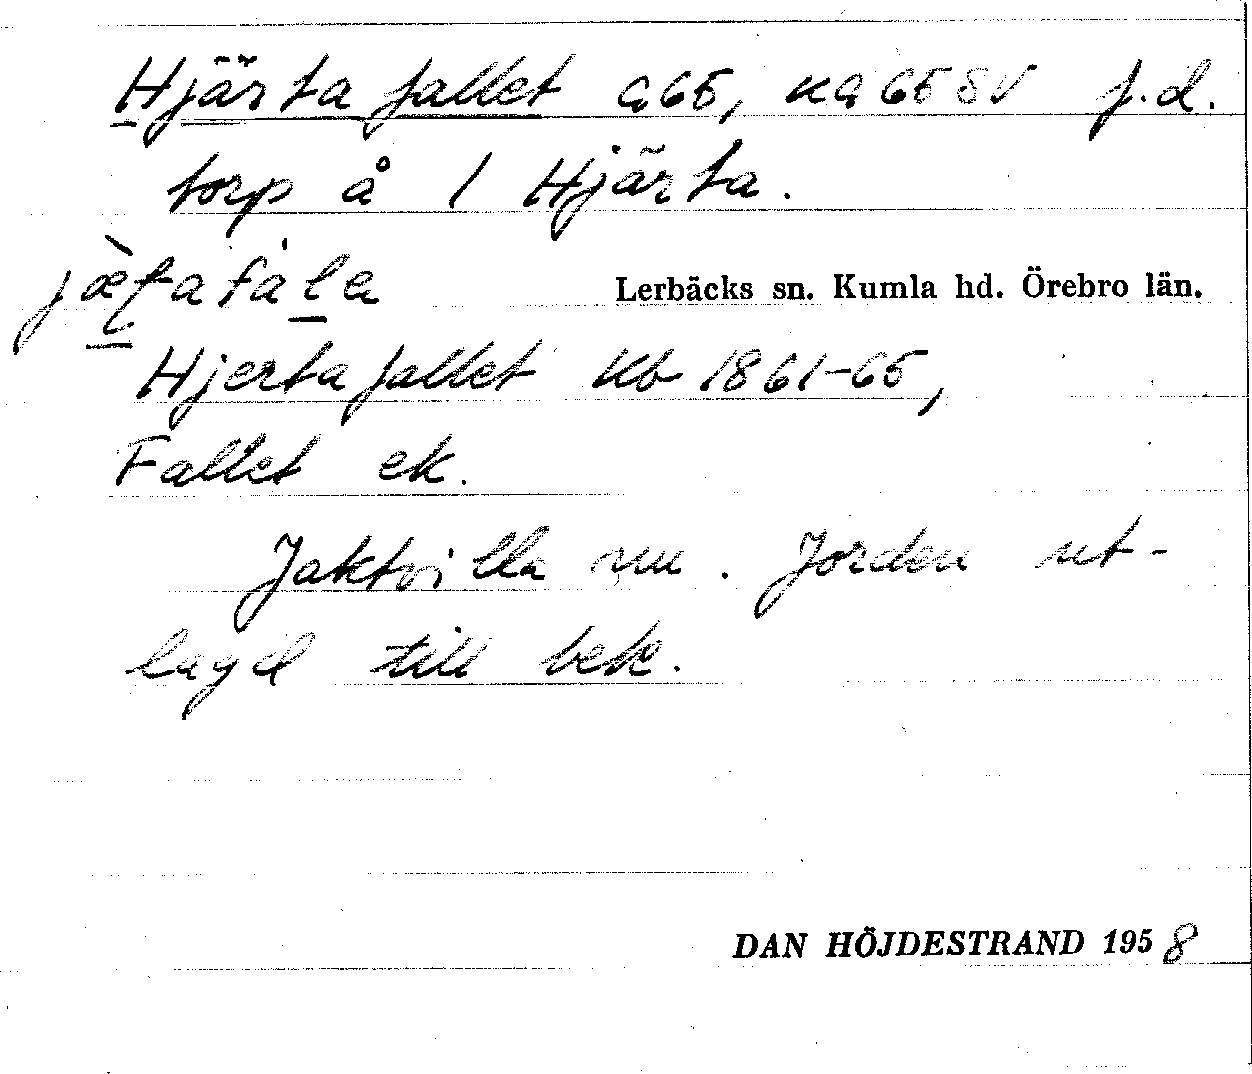 Hjärtafallet a65, ka65SV f.d.
torp å 1 Hjärta.
Lerbäcks sn. Kumla hd. Örebro län.
Hjertafallet kb 1861-65,
Fallet ek.
Jaktvilla nu. Jorden ut-
lagd till bek.
DAN HÖJDESTRAND 1958